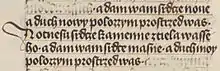 a dam wam srdce nowe
a duch nowy polozym prostrzed was
A otnesu srdce kamenne z tiela wasse
ho a dam wam srdce masne a duch moy
polozym prostrzed was